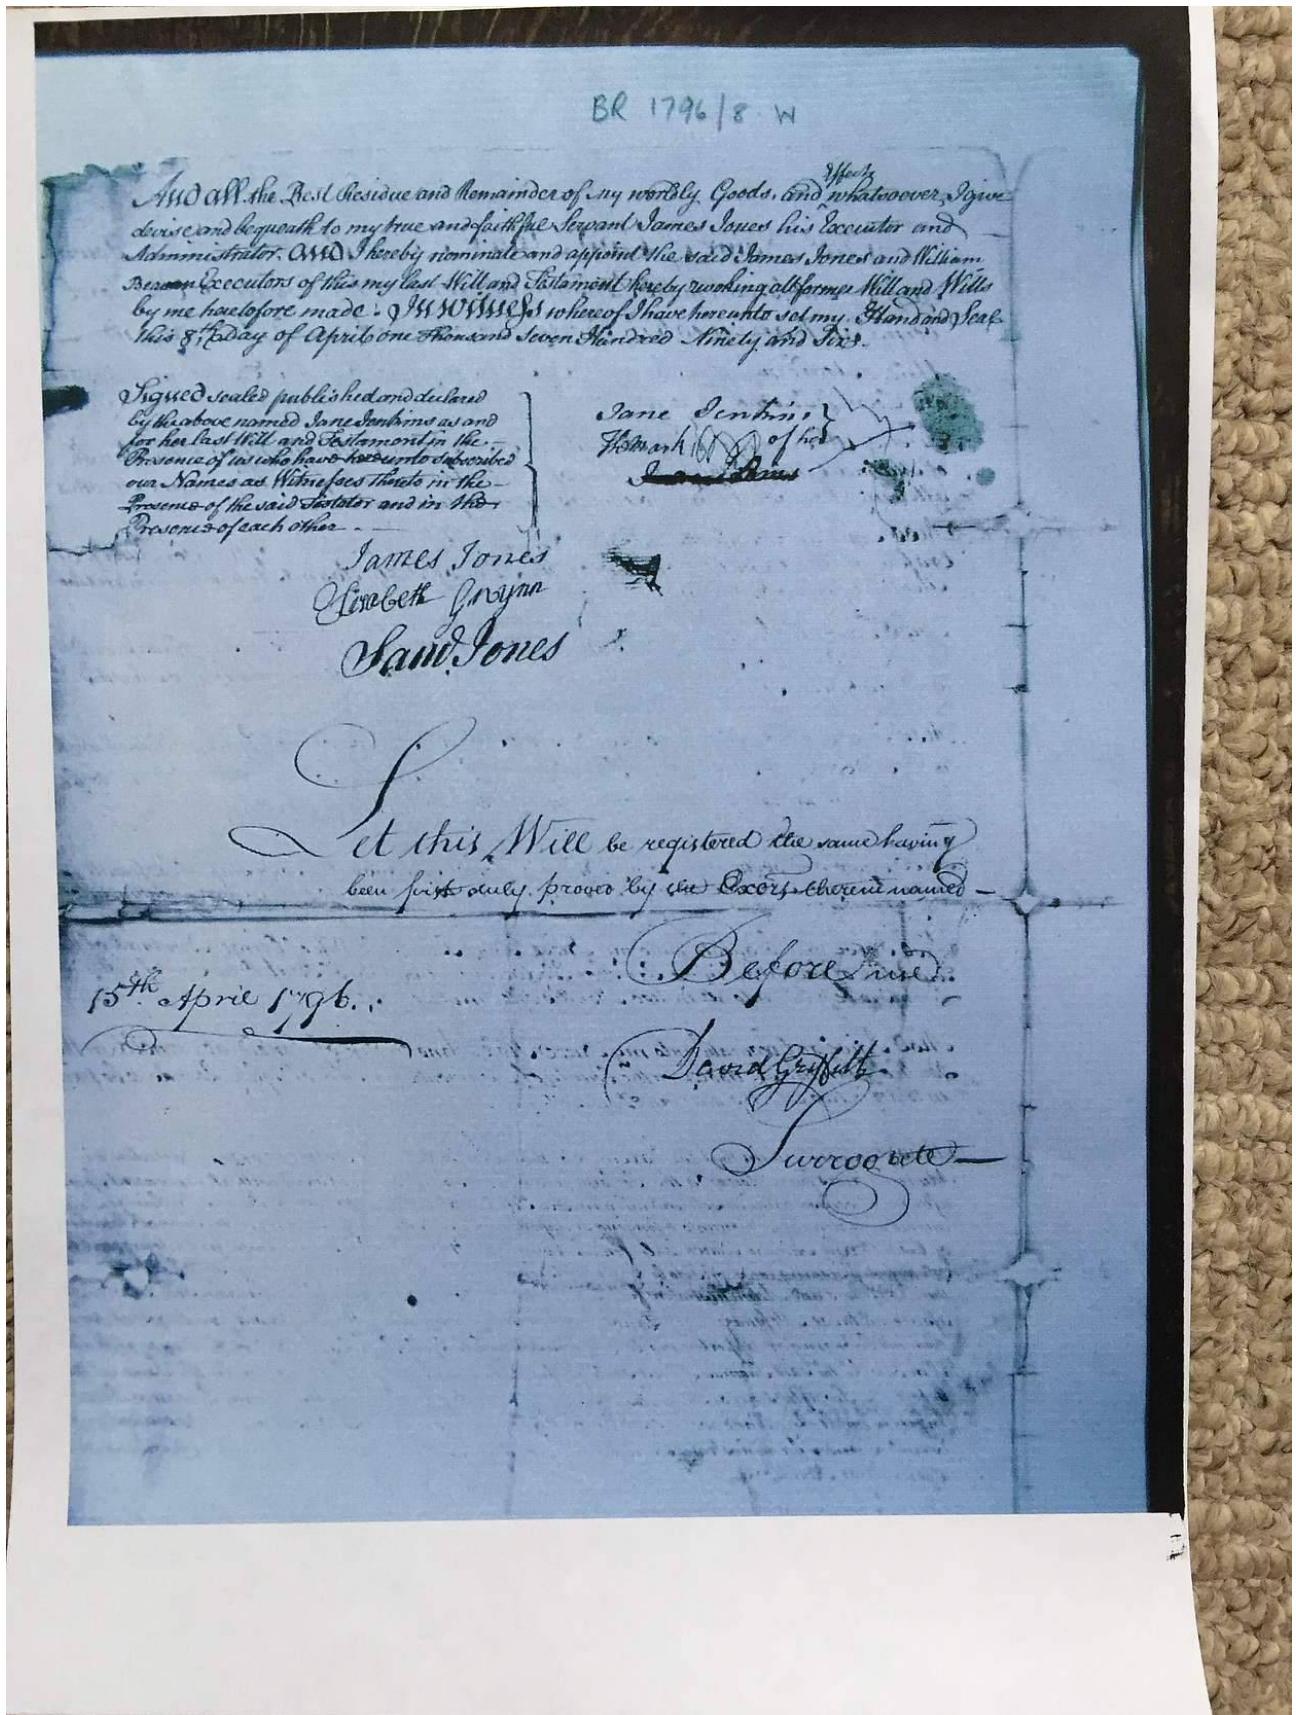 BR 1796/8 W
Effects
And all the Rest Residue and Remainder of my worldly Goods, and whatsoever, I give
devise and bequeath to my true and faithful Servant James Jones his Executor and
Administrator. And I hereby nominate and appoint the said James Jones and William
Executors of this my last Will and Testament hereby revoking all former Will and Wills
by me heretofore made: In Witness whereof I have hereunto set my Hand and Seal
this 8th Day of April one Thousand Seven Hundred Ninety and Six.
Signed sealed published and declared
by the above named Jane Jenkins as and
for her last Will and Testament in the
Presence of us who have hereunto subscribed
our Names as Witnesses thereto in the
Presence of the said Testator and in the
Presence of each other
Jane Jenkins
The mark of her
James Jones
Elizabeth Gwynn
Saml. Jones
Let this Will be registered the same having
been first duly proved by the Exors therein named
Before me
15th April 1796.
David Griffith
Surrogate